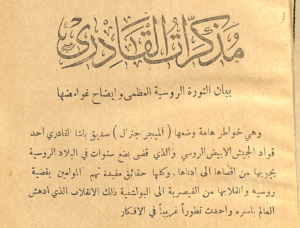 مذكرات القادري
بيان الثورة الروسية العظمى وايضاح غوامضها
وهي خواطر هامة وضعها (الميجر جنرال) صديق باشا القادري احد
قواد الجيش الابيض الروسي والذي قضى بضع سنوات في البلاد الروسية
يجوبها من اقصاها الى ادناها. وكلها حقائق مفيدة تهم المولعين بقضية
روسيه وانقلابها من القيصرية الى البولشفية ذلك الانقلاب الذي ادهش
العالم باسره واحدث تطوراً غريباً في الافكار